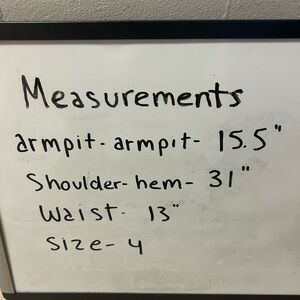 Measurements
armpit-armpit- 15.5"
Shoulder-hem- 31"
Waist- 13"
Size- 4